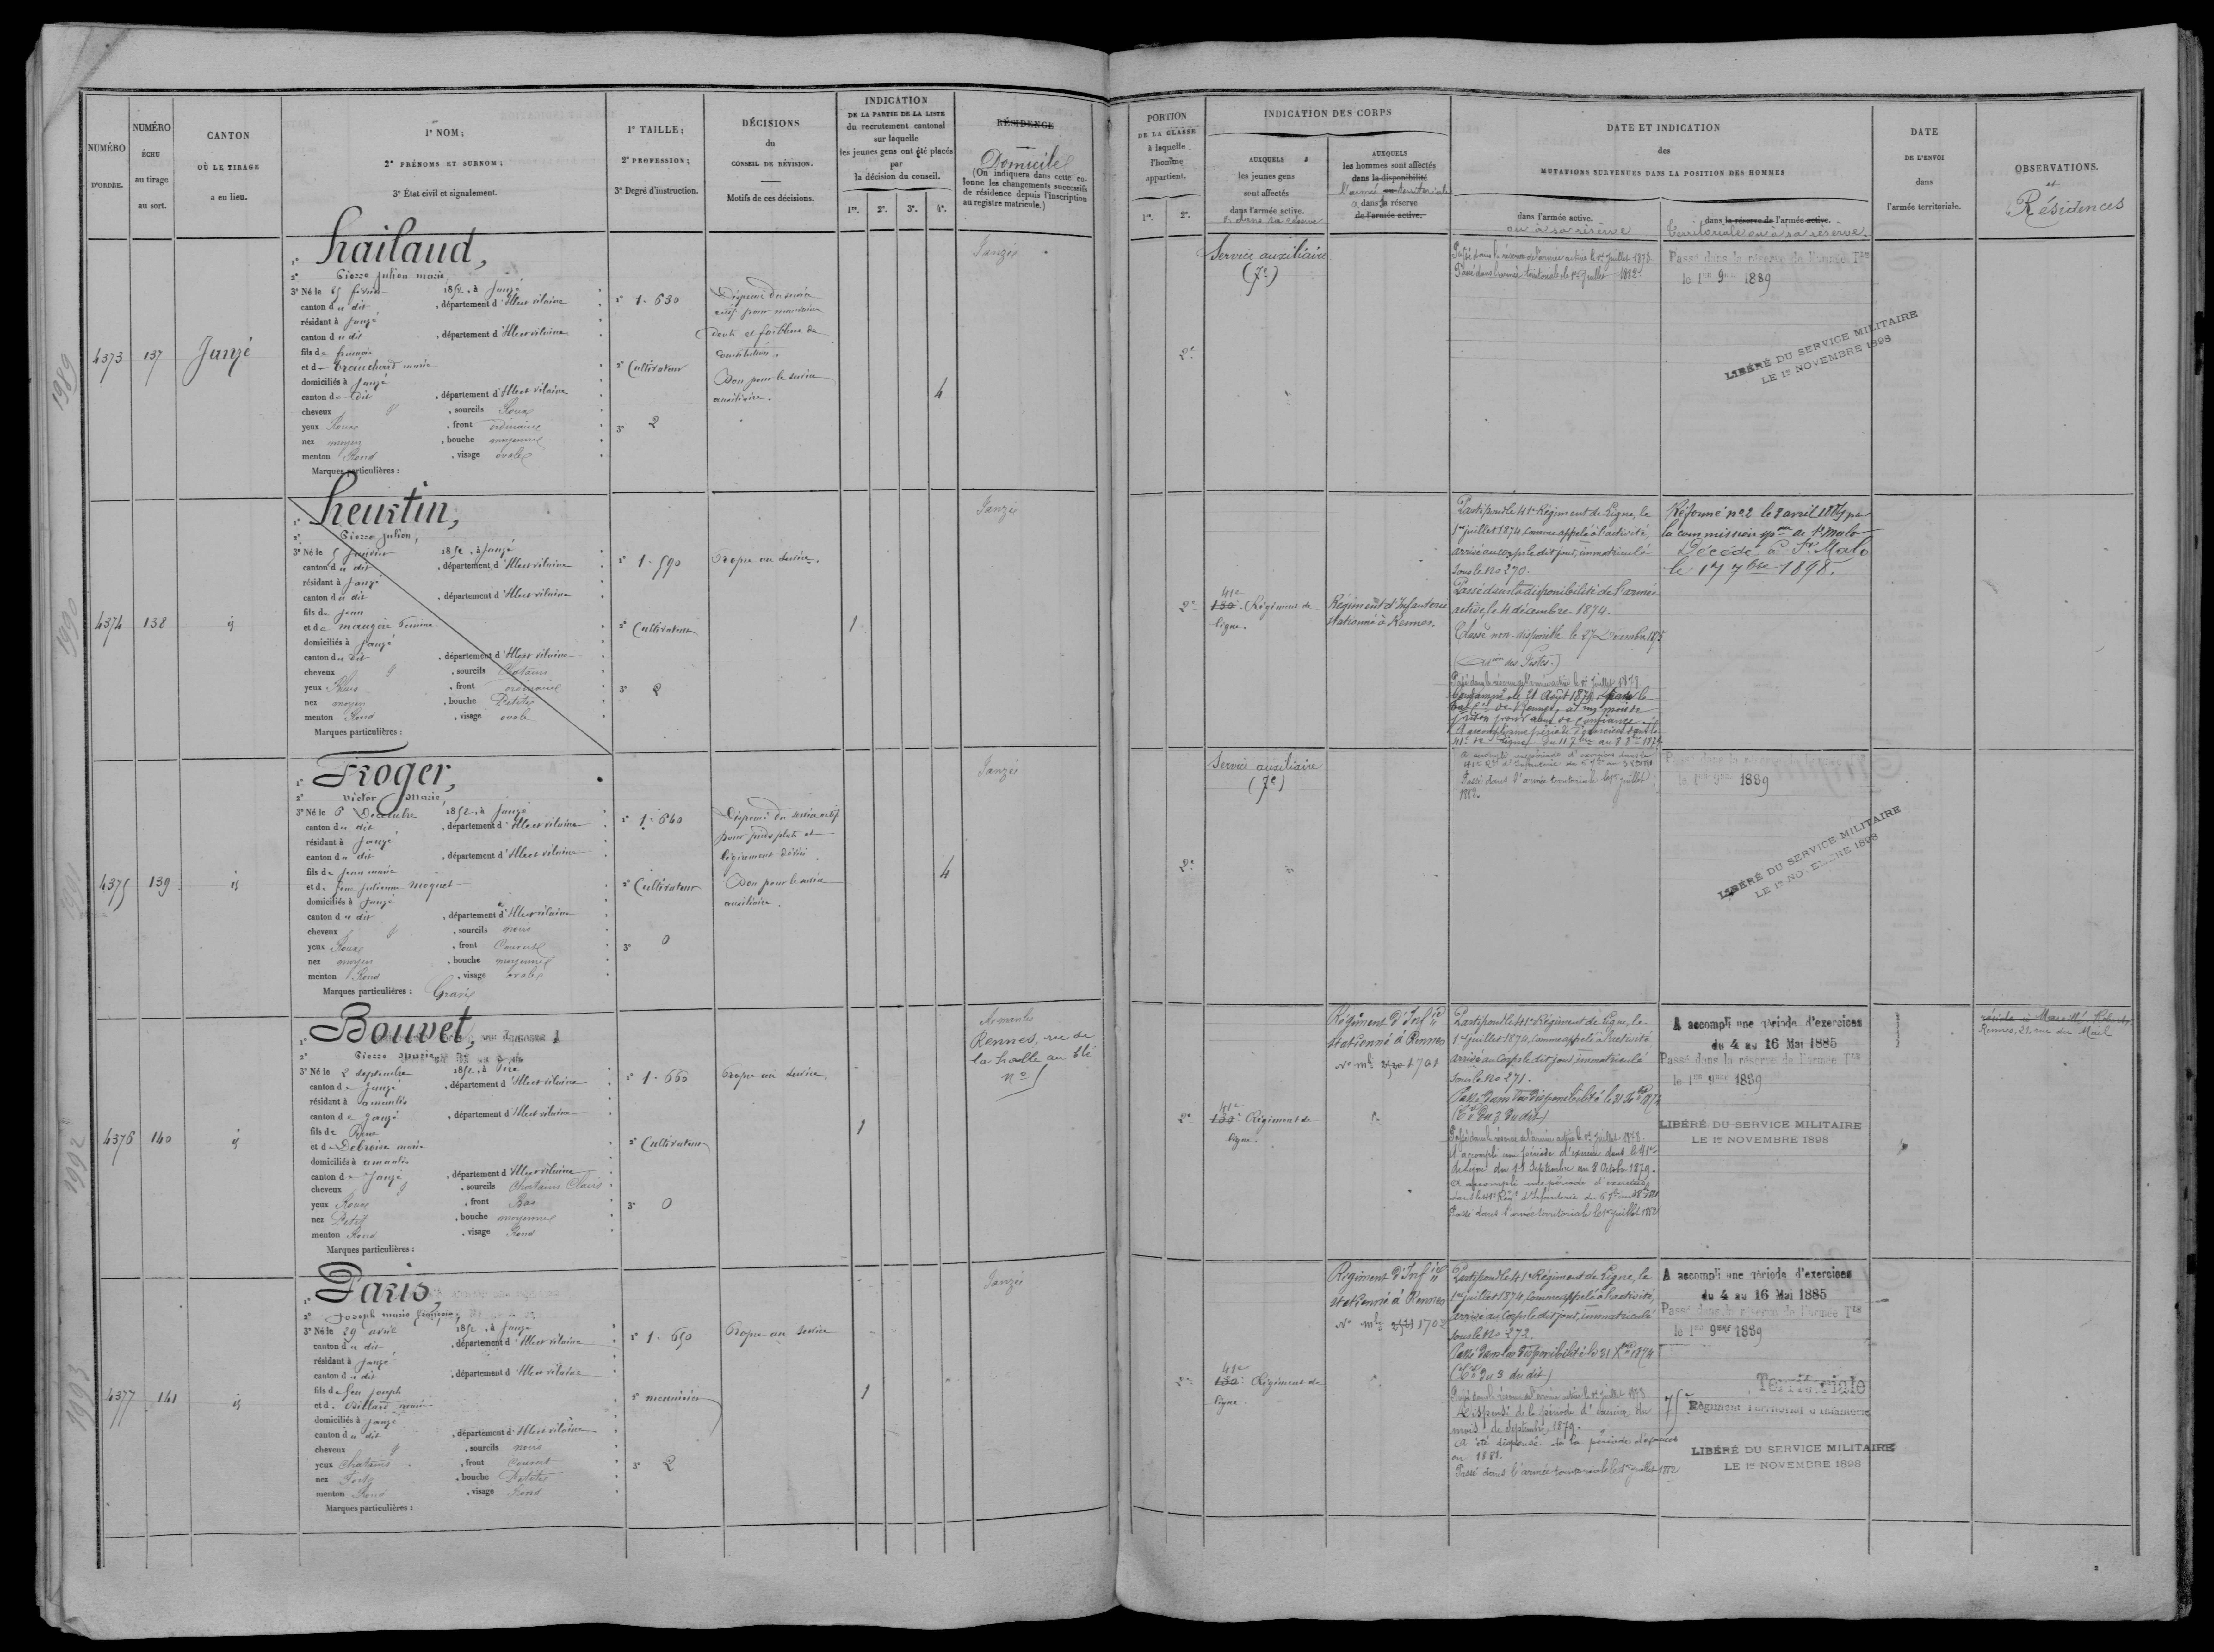 NUMÉRO D'ORDRE.
NUMÉRO ÉCHU au tirage au sort.
CANTON OÙ LE TIRAGE a eu lieu.
1° NOM;
2° PRÉNOMS ET SURNOM;
3° État civil et signalement.
1° TAILLE;
2° PROFESSION;
3° Degré d'instruction.
DÉCISIONS
du
CONSEIL DE RÉVISION.
Motifs de ces décisions.
INDICATION
DE LA PARTIE DE LA LISTE
du recrutement cantonal
sur laquelle
les jeunes gens ont été placés
par
la décision du conseil.
1re. 2e. 3e. 4e.
RÉSIDENCE
Domicile
(On indiquera dans cette co-
lonne les changements successifs
de résidence depuis l'inscription
au registre matricule.)
PORTION
DE LA CLASSE
à laquelle
l'homme
appartient.
1re. 2e.
INDICATION DES CORPS
AUXQUELS
les jeunes gens
sont affectés
dans l'armée active.
& dans sa réserve
AUXQUELS
les hommes sont affectés
dans la disponibilité
l'armée ou territoriale
& dans la réserve
de l'armée active.
DATE ET INDICATION
des
MUTATIONS SURVENUES DANS LA POSITION DES HOMMES
dans l'armée active.
ou à sa réserve
dans la réserve de l'armée active.
territoriale ou à sa réserve.
DATE
DE L'ENVOI
dans
l'armée territoriale.
OBSERVATIONS.
et
Résidences
1989
4373
137
Janzé
1°
2° Pierre Julien Marie
3° Né le 25 février 1852, à Janzé
canton du dit, département d'Ille et Vilaine
résidant à Janzé
canton du dit, département d'Ille et Vilaine
fils de François
et de Tranchard Marie
domiciliés à Janzé
canton du dit, département d'Ille et Vilaine
cheveux & sourcils Roux
yeux Roux, front ordinaire
nez moyen, bouche moyenne
menton Rond, visage ovale
Marques particulières:
1° 1.630
2° Cultivateur
3° 2
Dispensé du service
actif pour mauvaises
dents et faiblesse de
constitution.
Bon pour le service
auxiliaire.
4
Janzé
2e
Service auxiliaire
(7e)
Passé dans la réserve de l'armée active le 1er Juillet 1878
Passé dans l'armée territoriale le 1er Juillet 1882.
Passé dans la réserve de l'armée Tale
le 1er 9bre 1889
LIBÉRÉ DU SERVICE MILITAIRE
LE 1er NOVEMBRE 1898
1990
4374
138
id
1° Heurtin,
2° Pierre Julien,
3° Né le 5 Janvier 1852, à Janzé
canton du dit, département d'Ille et Vilaine
résidant à Janzé
canton du dit, département d'Ille et Vilaine
fils de Jean
et de Maugère
domiciliés à Janzé
canton du dit, département d'Ille et Vilaine
cheveux & sourcils Chatains
yeux Bleus, front ordinaire
nez moyen, bouche Petite
menton Rond, visage ovale
Marques particulières:
1° 1.590
2° Cultivateur
3° 2
Propre au service.
1
Janzé
2e
41e
130e Régiment de
ligne.
Régiment d'Infanterie
stationné à Rennes.
Parti pour le 41e Régiment de Ligne, le
1er juillet 1874, comme appelé à l'activité,
arrivé au corps le dit jour, immatriculé
sous le No 270.
Passé dans la disponibilité de l'armée
active, le 4 décembre 1874.
Classé non-disponible le 27 Décembre 1875
(Aion des Postes.)
Passé dans la réserve de l'armée active le 1er Juillet 1878
Condamné le 21 Août 1879 par le
tribal corel de Rennes, à un mois de
prison pour abus de confiance
A accompli une période d'exercices dans le
41e de Ligne du 11 7bre au 8 8bre 1879
Réformé no 2 le 8 avril 1884 par
la commission spale de St Malo
Décédé à St Malo
le 17 7bre 1898.
1991
4375
139
id
1° Froger,
2° Victor Marie,
3° Né le 6 Décembre 1852, à Janzé
canton du dit, département d'Ille et Vilaine
résidant à Janzé
canton du dit, département d'Ille et Vilaine
fils de Jean Marie
et de feue Julienne Moquet
domiciliés à Janzé
canton du dit, département d'Ille et Vilaine
cheveux & sourcils noirs
yeux Roux, front Couvert
nez moyen, bouche moyenne
menton Rond, visage ovale
Marques particulières: Gravé
1° 1.640
2° Cultivateur
3° 0
Dispensé du service actif
pour pieds plats et
légèrement déviés
Bon pour le service
auxiliaire.
4
Janzé
2e
Service auxiliaire
(7e)
Passé dans l'armée territoriale le 1er juillet
1882.
Passé dans la réserve de l'armée
le 1er 9bre 1889
LIBÉRÉ DU SERVICE MILITAIRE
LE 1er NOVEMBRE 1898
1992
4376
140
id
1° Bouvet,
2° Pierre Marie
3° Né le 2 septembre 1852, à Piré
canton de Janzé, département d'Ille et Vilaine
résidant à Amanlis
canton de Janzé, département d'Ille et Vilaine
fils de René
et de Debroise Marie
domiciliés à Amanlis
canton de Janzé, département d'Ille et Vilaine
cheveux & sourcils Chatains Clairs
yeux Roux, front Bas
nez Petit, bouche moyenne
menton Rond, visage Rond
Marques particulières:
1° 1.660
2° Cultivateur
3° 0
Propre au service.
1
Amanlis
Rennes, rue de
la halle au blé
no 5
2e
41e
130e Régiment de
ligne.
Régiment d'Infie
stationné à Rennes
No mle 1701
Parti pour le 41e Régiment de Ligne, le
1er juillet 1874, comme appelé à l'activité
arrivé au Corps le dit jour, immatriculé
sous le No 271.
Passé dans la disponibilité le 31 Xbre 1874
(Cre du 3 du dit)
Passé dans la réserve de l'armée active le 1er Juillet 1878
A accompli une période d'exercices dans le 41e
de Ligne du 11 Septembre au 8 Octobre 1879.
A accompli une période d'exercices
dans le 41e Régt d'Infanterie
Passé dans l'armée territoriale le 1er juillet 1882
A accompli une période d'exercices
du 4 au 16 Mai 1885
Passé dans la réserve de l'armée Tale
le 1er 9bre 1889
LIBÉRÉ DU SERVICE MILITAIRE
LE 1er NOVEMBRE 1898
Rennes, 21, rue du Mail
1993
4377
141
id
1° Paris,
2° Joseph Marie François,
3° Né le 29 avril 1852, à Janzé
canton du dit, département d'Ille et Vilaine
résidant à Janzé
canton du dit, département d'Ille et Vilaine
fils de feu Joseph
domiciliés à Janzé
canton du dit, département d'Ille et Vilaine
cheveux & sourcils noirs
yeux Chatains, front Couvert
nez Fort, bouche Petite
menton Rond, visage Rond
Marques particulières:
1° 1.650
2° menuisier
3° 2
Propre au service
1
Janzé
2e
41e
130e Régiment de
ligne.
Régiment d'Infie
stationné à Rennes
No mle 1702
Parti pour le 41e Régiment de Ligne, le
1er juillet 1874, comme appelé à l'activité,
arrivé au Corps le dit jour, immatriculé
sous le No 272.
Passé dans la disponibilité le 31 Xbre 1874
(Cre du 3 du dit)
Passé dans la réserve de l'armée active le 1er Juillet 1878
Dispensé de la période d'exercices du
mois de Septembre 1879.
A été dispensé de la période d'exercices
en 1881.
Passé dans l'armée territoriale le 1er juillet 1882
A accompli une période d'exercices
du 4 au 16 Mai 1885
Passé dans la réserve de l'armée Tale
le 1er 9bre 1889
Territoriale
75e Régiment Territorial d'Infanterie
LIBÉRÉ DU SERVICE MILITAIRE
LE 1er NOVEMBRE 1898